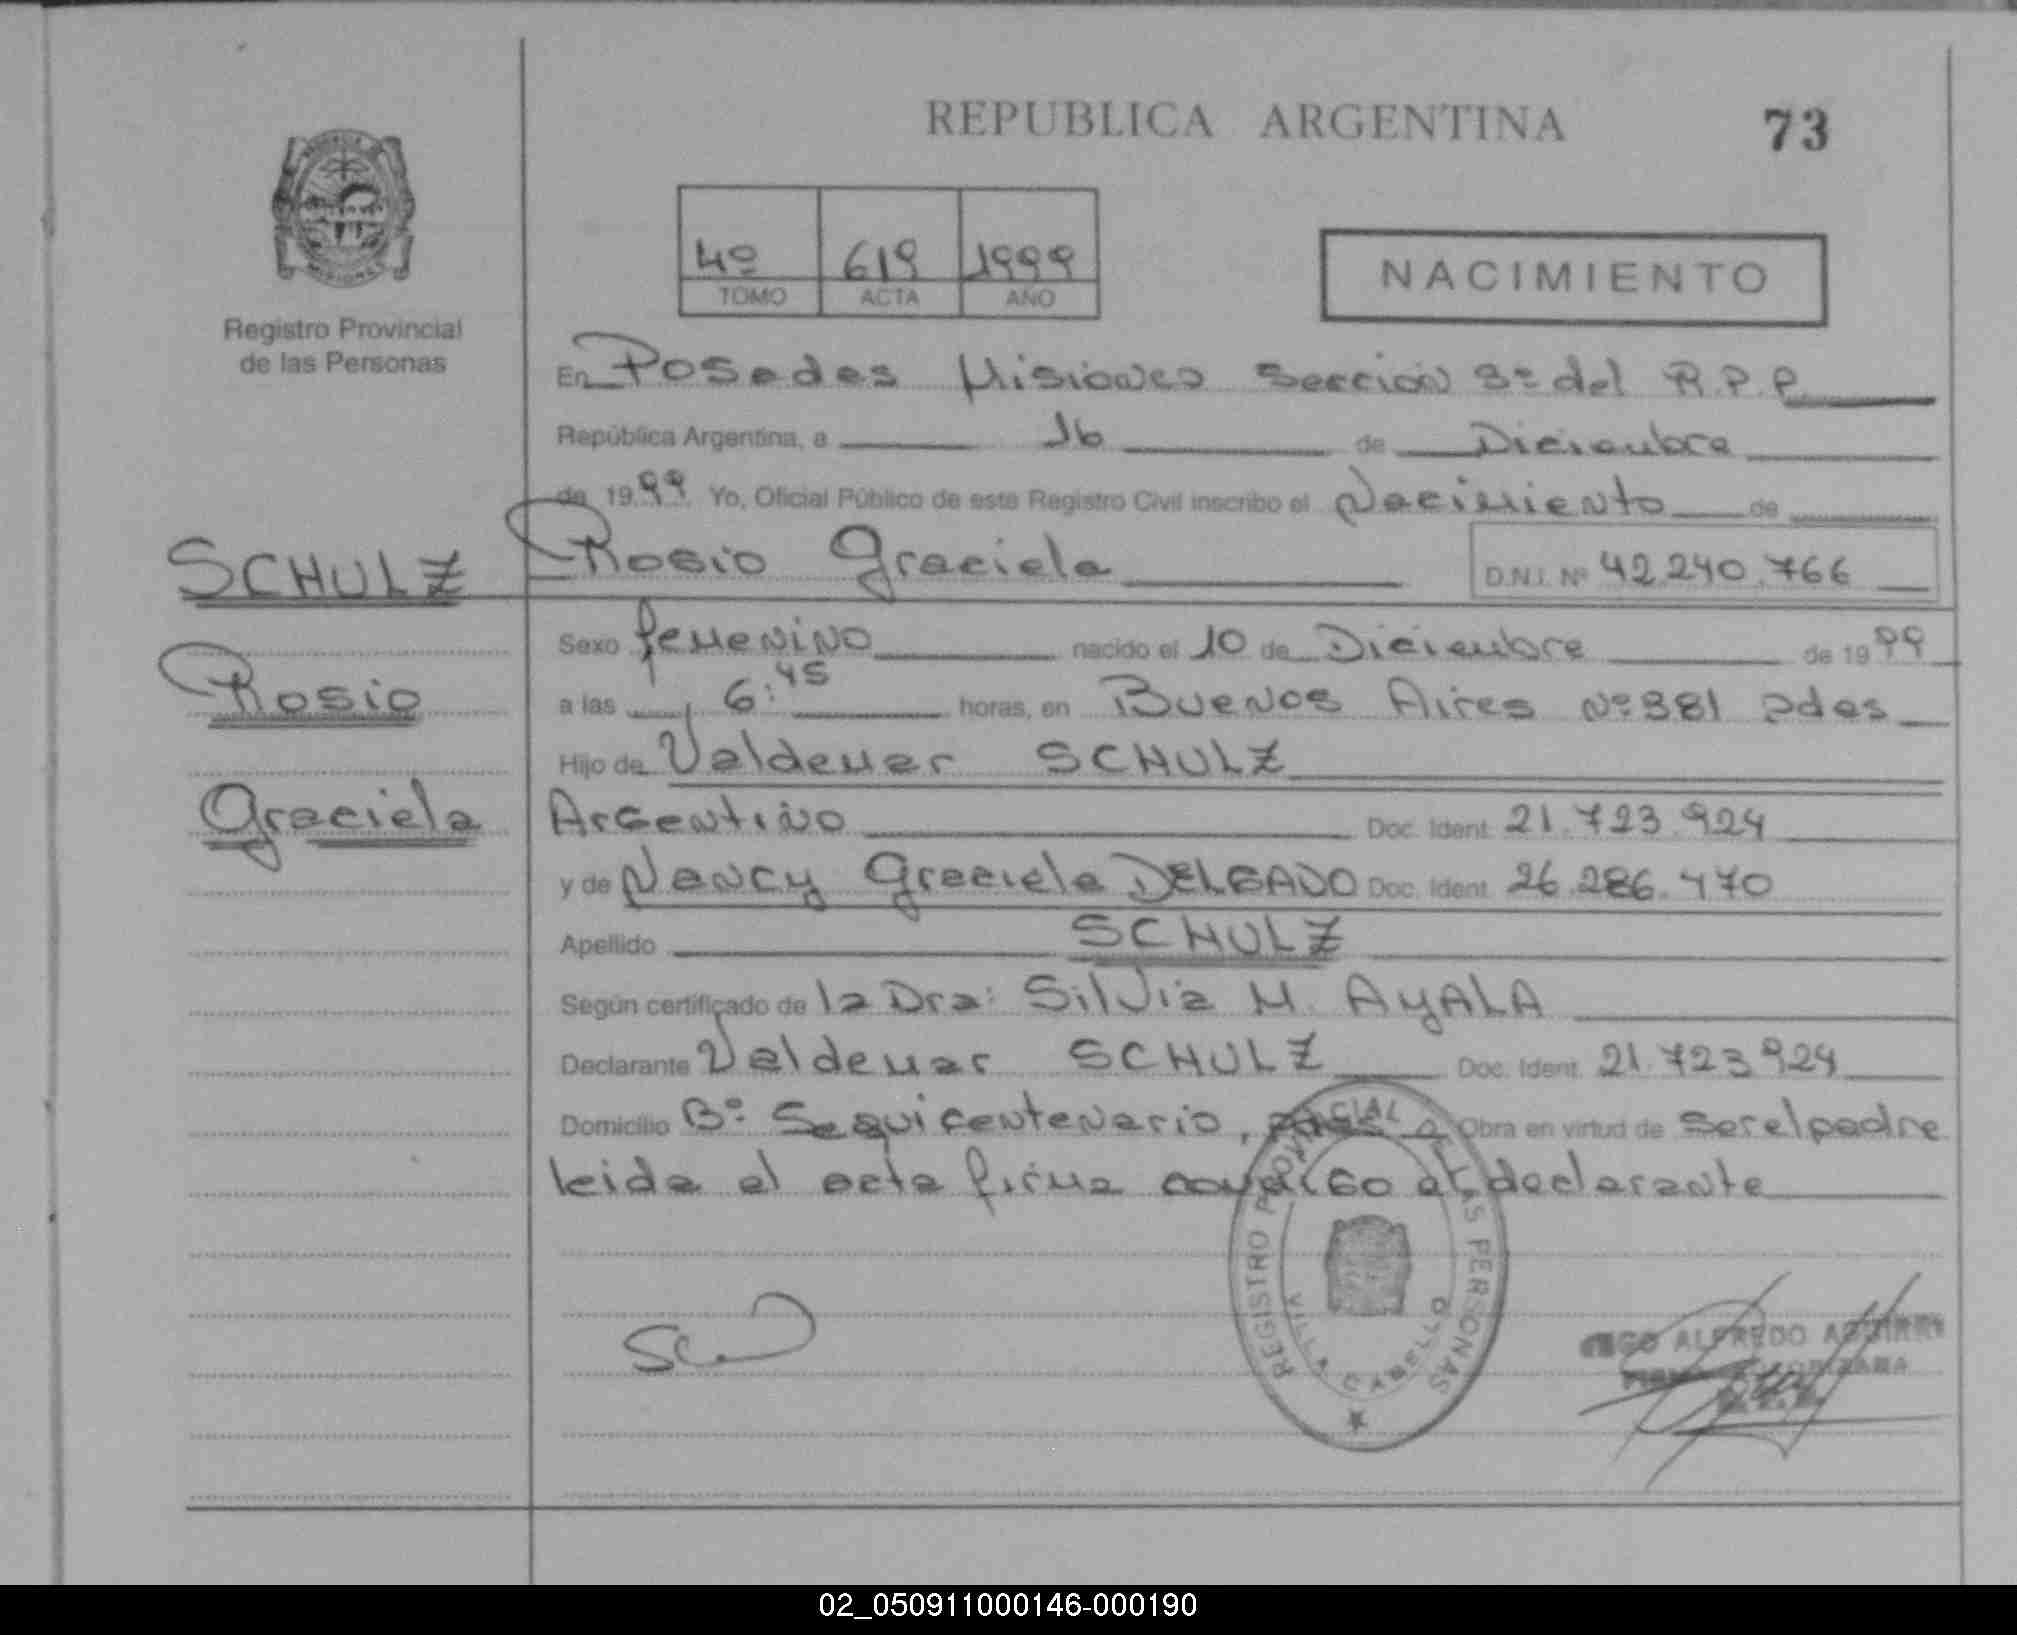 REPUBLICA ARGENTINA
73
4º 619 1999
TOMO ACTA AÑO
NACIMIENTO
Registro Provincial
de las Personas
En Posadas Misiones Sección 3º del R.P.P.
República Argentina, a 16 de Diciembre
de 1999 Yo, Oficial Público de este Registro Civil inscribo el Nacimiento de
SCHULZ
Rosio Graciela D.N.I. Nº 42.240.766
Sexo femenino nacido el 10 de Diciembre de 1999
Rosio
a las 6:45 horas, en Buenos Aires Nº 381 pdas
Hijo de Valdemar SCHULZ
Graciela
Argentino Doc. Ident. 21.723.924
y de Nancy Graciela DELGADO Doc. Ident. 26.286.470
Apellido SCHULZ
Según certificado de la Dra: Silvia M. AyALA
Declarante Valdemar SCHULZ Doc. Ident. 21.723.924
Domicilio Bº Sequicentenario, pdas Obra en virtud de ser el padre
leida el acta firma conmigo el declarante
REGISTRO PROVINCIAL DE LAS PERSONAS
VILLA CABELLO
ALFREDO
02_050911000146-000190